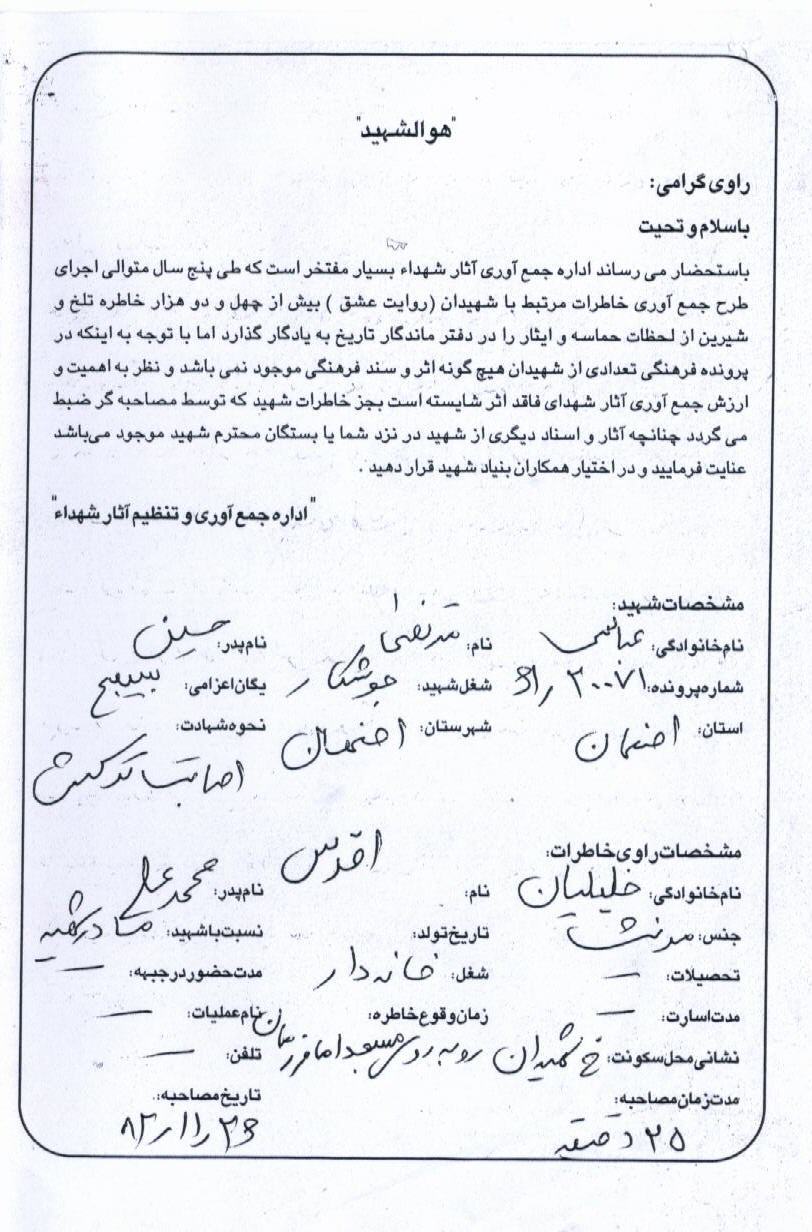 "هوالشهید"
راوی گرامی:
باسلام و تحیت
باستحضار می رساند اداره جمع آوری آثار شهداء بسیار مفتخر است که طی پنج سال متوالی اجرای
طرح جمع آوری خاطرات مرتبط با شهیدان (روایت عشق ) بیش از چهل و دو هزار خاطره تلخ و
شیرین از لحظات حماسه و ایثار را در دفتر ماندگار تاریخ به یادگار گذارد اما با توجه به اینکه در
پرونده فرهنگی تعدادی از شهیدان هیچ گونه اثر و سند فرهنگی موجود نمی باشد و نظر به اهمیت و
ارزش جمع آوری آثار شهدای فاقد اثر شایسته است بجز خاطرات شهید که توسط مصاحبه گر ضبط
می گردد چنانچه آثار و اسناد دیگری از شهید در نزد شما یا بستگان محترم شهید موجود می‌باشد
عنایت فرمایید و در اختیار همکاران بنیاد شهید قرار دهید .
"اداره جمع آوری و تنظیم آثار شهداء"
مشخصات شهید:
نام خانوادگی: عباسی نام: مرتضی نام پدر: حسین
شماره پرونده: ۲۰۰۷۱ شغل شهید: جوشکار یگان اعزامی: بسیج
استان: اصفهان شهرستان: اصفهان نحوه شهادت:
اصابت ترکش
مشخصات راوی خاطرات:
نام خانوادگی: خلیلیان نام: اقدس نام پدر: محمدعلی
جنس: مونث تاریخ تولد: نسبت با شهید: مادر شهید
تحصیلات: — شغل: خانه دار مدت حضور در جبهه: —
مدت اسارت: — زمان وقوع خاطره: نام عملیات: —
نشانی محل سکونت: خ شهیدان روبه روی مسجد امام زمان تلفن: —
مدت زمان مصاحبه: تاریخ مصاحبه:
۲۵ دقیقه ۸۲/۱۱/۲۶